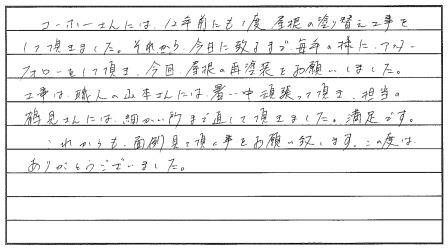 ユーホーさんには、12年前にも1度屋根の塗り替え工事を
して頂きました。それから今日に致るまで毎年の様に、アフター
フォローをして頂き、今回、屋根の再塗装をお願いしました。
工事は、職人の山本さんには、暑い中頑張って頂き、担当の
鶴見さんには、細かい所まで直して頂きました。満足です。
これからも、面倒見て頂く事をお願い致します。この度は、
ありがとうございました。